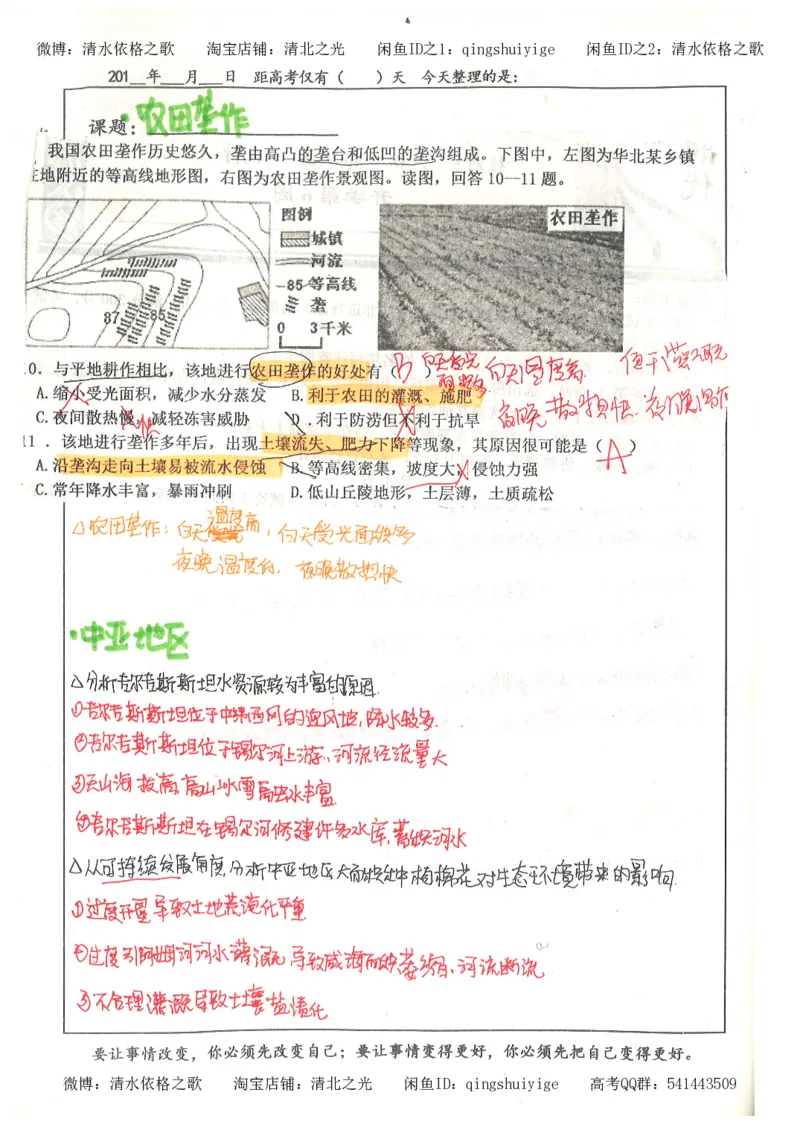 微博：清水依格之歌 淘宝店铺：清北之光 闲鱼ID之1：qingshuiyige 闲鱼ID之2：清水依格之歌
201__年___月___日 距高考仅有（ ）天 今天整理的是：
课题：农田垄作
我国农田垄作历史悠久，垄由高凸的垄台和低凹的垄沟组成。下图中，左图为华北某乡镇
驻地附近的等高线地形图，右图为农田垄作景观图。读图，回答10--11题。
图例
城镇
河流
85 等高线
垄
0 3千米
87
85
农田垄作
10．与平地耕作相比，该地进行农田垄作的好处有（B）
白天受光面积多 白天温度高 便于灌溉
A.缩小受光面积，减少水分蒸发 B.利于农田的灌溉、施肥
夜晚散热快
C.夜间散热慢，减轻冻害威胁 D．利于防涝但不利于抗旱
快
11．该地进行垄作多年后，出现土壤流失、肥力下降等现象，其原因很可能是（A）
A.沿垄沟走向土壤易被流水侵蚀 B.等高线密集，坡度大，侵蚀力强
C.常年降水丰富，暴雨冲刷 D.低山丘陵地形，土层薄，土质疏松
△农田垄作：白天温度高，白天受光面积多
夜晚温度低，夜晚散热快
·中亚地区
△分析吉尔吉斯斯坦水资源较为丰富的原因
①吉尔吉斯斯坦位于中纬西风的迎风坡，降水较多.
②吉尔吉斯斯坦位于锡尔河上游，河流径流量大
③天山海拔高，高山冰雪融水丰富.
④吉尔吉斯斯坦在锡尔河修建许多水库，蓄积河水
△从可持续发展角度，分析中亚地区大面积种植棉花对生态环境带来的影响.
①过度开垦导致土地荒漠化严重
②过度引阿姆河河水灌溉，导致咸海面积萎缩，河流断流
③不合理灌溉导致土壤盐渍化
要让事情改变，你必须先改变自己；要让事情变得更好，你必须先把自己变得更好。
微博：清水依格之歌 淘宝店铺：清北之光 闲鱼ID：qingshuiyige 高考QQ群：541443509